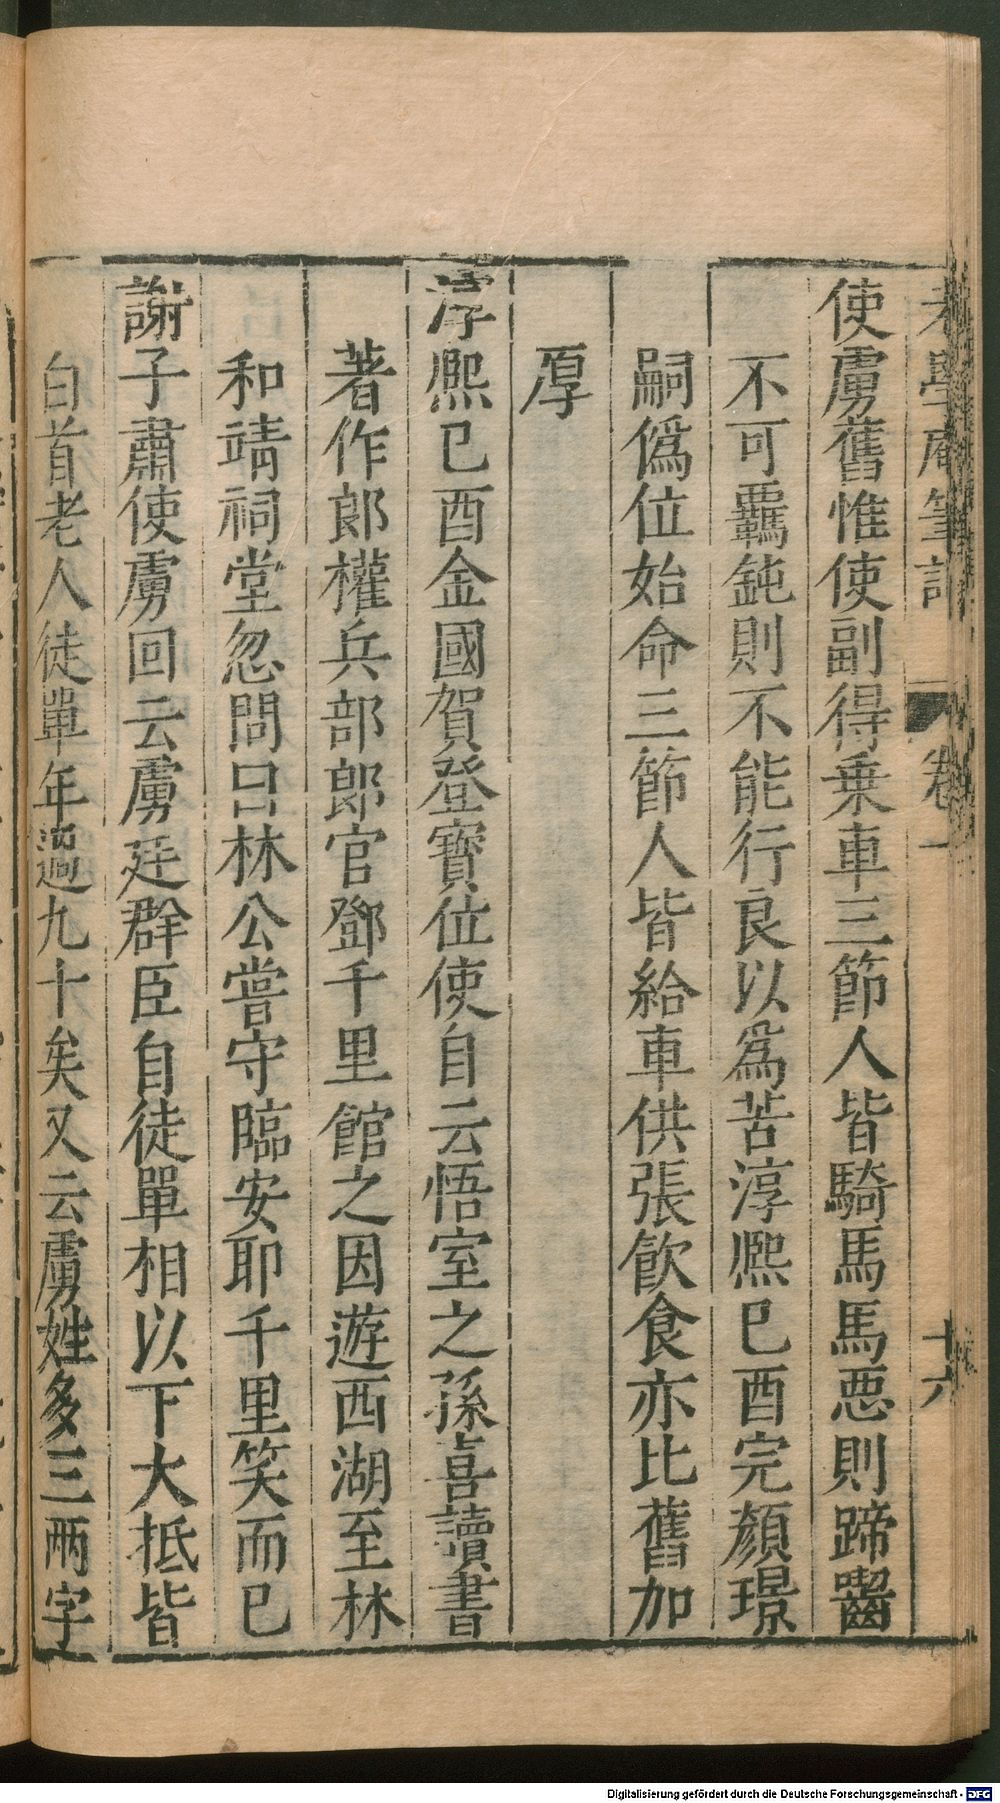 老學庵筆記 卷一 十六
使虜舊惟使副得乗車三節人皆騎馬馬惡則蹄齧
不可羈鈍則不能行良以爲苦淳熈巳酉完顏璟
嗣僞位始命三節人皆給車供張飮食亦比舊加
厚
淳熈巳酉金國賀登寶位使自云悟室之孫喜讀書
著作郎權兵部郎官鄧千里館之因遊西湖至林
和靖祠堂忽問曰林公嘗守臨安耶千里笑而巳
謝子肅使虜回云虜廷群臣自徒單相以下大抵皆
白首老人徒單年過九十矣又云虜姓多三兩字
Digitalisierung gefördert durch die Deutsche Forschungsgemeinschaft - DFG